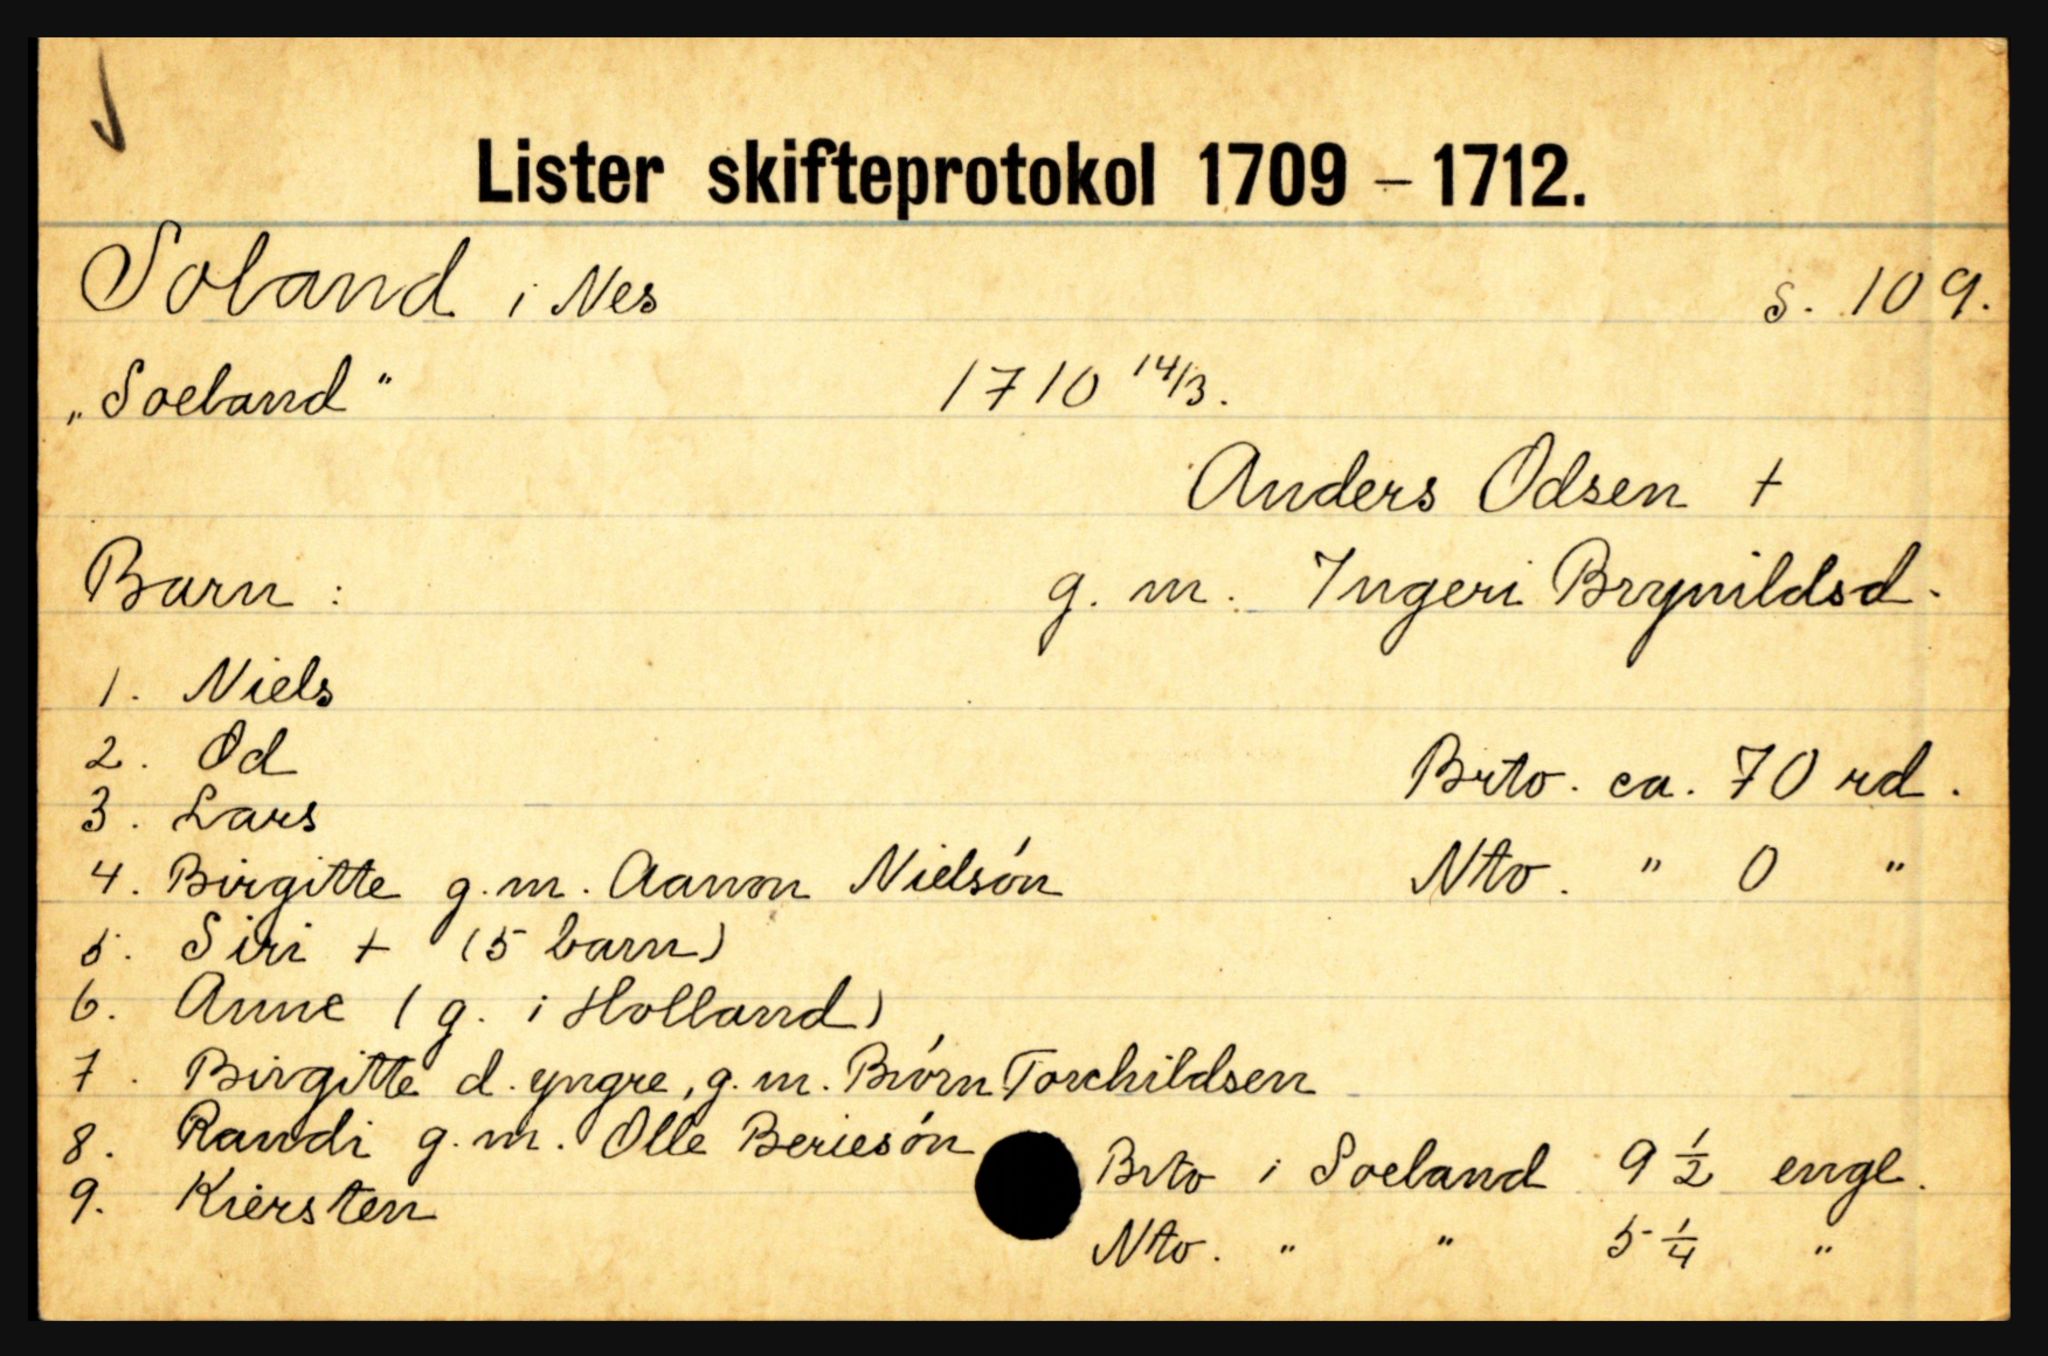 Lister skifteprotokol 1709 – 1712.
Soland i Nes s. 109.
„Soeland" 1710 14/3.
Anders Odsen +
Barn : g. m. Ingeri Brynildsd.
1. Niels
2. Od
Brto. ca. 70 rd.
3. Lars
4. Birgitte g.m. Aanon Nielsøn
Nto. " 0 "
5. Siri + (5 barn)
6. Anne (g. i Holland)
7. Birgitte d. yngre, g.m. Biørn Torchildsen
8. Randi g.m. Olle Beriesøn
Brto i Soeland 9 1/2 engl.
9. Kiersten
Nto. " " 5 1/4 "